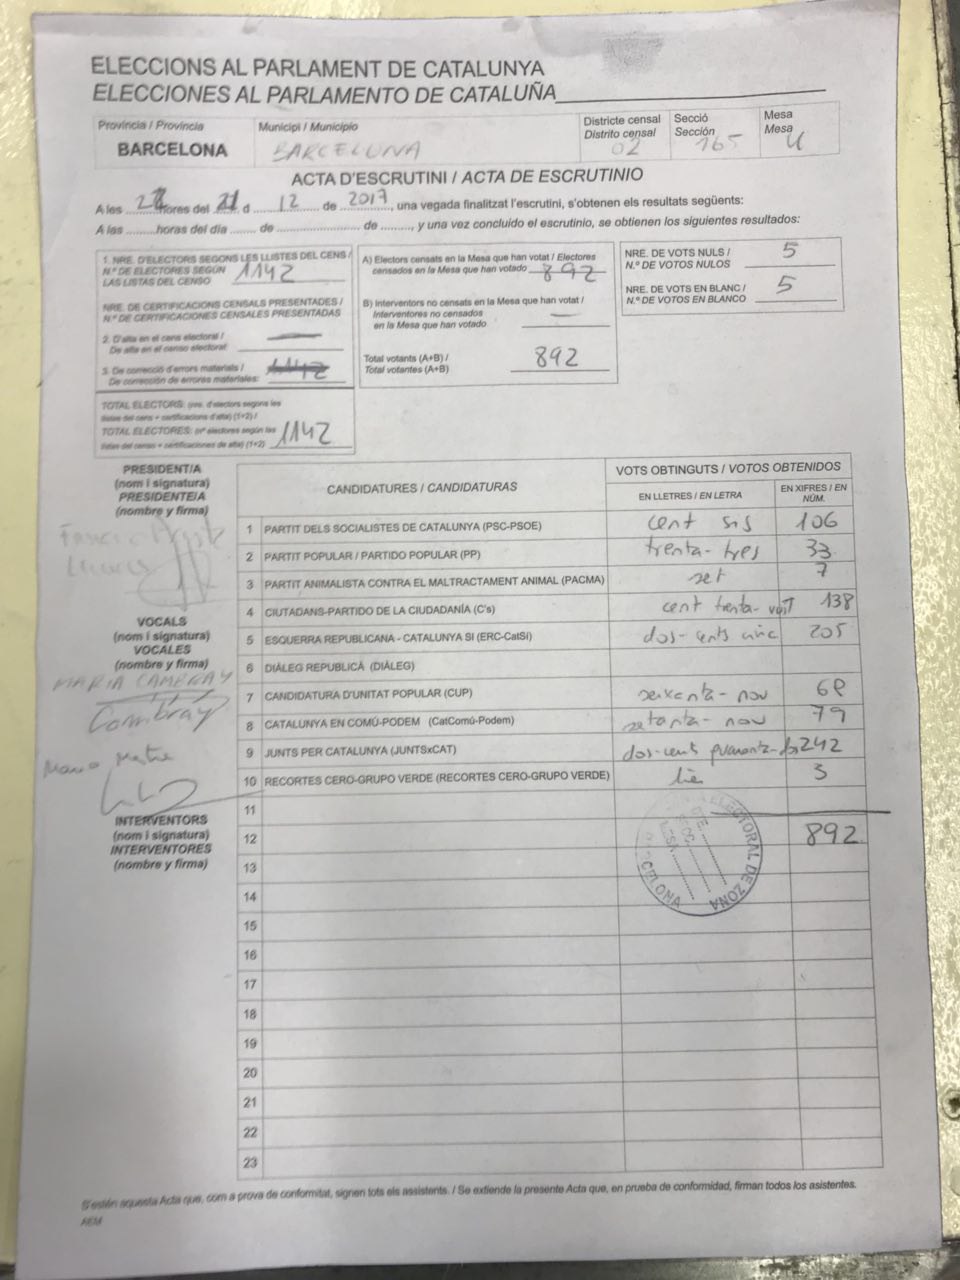 ELECCIONS AL PARLAMENT DE CATALUNYA
ELECCIONES AL PARLAMENTO DE CATALUÑA
Província / Provincia
BARCELONA
Municipi / Municipio
BARCELONA
Districte censal
Distrito censal
02
Secció
Sección
165
Mesa
Mesa
U
ACTA D'ESCRUTINI / ACTA DE ESCRUTINIO
A les ........hores del 21 d ... 12 ... de 2017, una vegada finalitzat l'escrutini, s'obtenen els resultats següents:
A las ........horas del día ....... de ........................ de ........, y una vez concluido el escrutinio, se obtienen los siguientes resultados:
1. NRE. D'ELECTORS SEGONS LES LLISTES DEL CENS /
N.º DE ELECTORES SEGÚN
LAS LISTAS DEL CENSO
1142
NRE. DE CERTIFICACIONS CENSALS PRESENTADES /
N.º DE CERTIFICACIONES CENSALES PRESENTADAS
2. D'alta en el cens electoral /
De alta en el censo electoral:
3. De correcció d'errors materials /
De corrección de errores materiales:
TOTAL ELECTORS: (nre. d'electors segons les
llistes del cens + certificacions d'alta) (1+2) /
TOTAL ELECTORES: (nº electores según las
listas del censo + certificaciones de alta) (1+2)
1142
A) Electors censats en la Mesa que han votat / Electores
censados en la Mesa que han votado
892
B) Interventors no censats en la Mesa que han votat /
Interventores no censados
en la Mesa que han votado
Total votants (A+B) /
Total votantes (A+B)
892
NRE. DE VOTS NULS /
N.º DE VOTOS NULOS
5
NRE. DE VOTS EN BLANC /
N.º DE VOTOS EN BLANCO
5
PRESIDENT/A
(nom i signatura)
PRESIDENTE/A
(nombre y firma)
VOCALS
(nom i signatura)
VOCALES
(nombre y firma)
MARIA CAMBRAY
Cambray
INTERVENTORS
(nom i signatura)
INTERVENTORES
(nombre y firma)
CANDIDATURES / CANDIDATURAS
VOTS OBTINGUTS / VOTOS OBTENIDOS
EN LLETRES / EN LETRA
EN XIFRES / EN NÚM.
1 PARTIT DELS SOCIALISTES DE CATALUNYA (PSC-PSOE) cent sis 106
2 PARTIT POPULAR / PARTIDO POPULAR (PP) trenta-tres 33
3 PARTIT ANIMALISTA CONTRA EL MALTRACTAMENT ANIMAL (PACMA) set 7
4 CIUTADANS-PARTIDO DE LA CIUDADANÍA (C's) cent trenta-vuit 138
5 ESQUERRA REPUBLICANA - CATALUNYA SÍ (ERC-CatSí) dos-cents cinc 205
6 DIÀLEG REPUBLICÀ (DIÀLEG)
7 CANDIDATURA D'UNITAT POPULAR (CUP) seixanta-nou 69
8 CATALUNYA EN COMÚ-PODEM (CatComú-Podem) setanta-nou 79
9 JUNTS PER CATALUNYA (JUNTSxCAT) dos-cents quaranta-dos 242
10 RECORTES CERO-GRUPO VERDE (RECORTES CERO-GRUPO VERDE) 3
11
12 892
13
14
15
16
17
18
19
20
21
22
23
ELECTORAL DE ZONA
S'estén aquesta Acta que, com a prova de conformitat, signen tots els assistents. / Se extiende la presente Acta que, en prueba de conformidad, firman todos los asistentes.